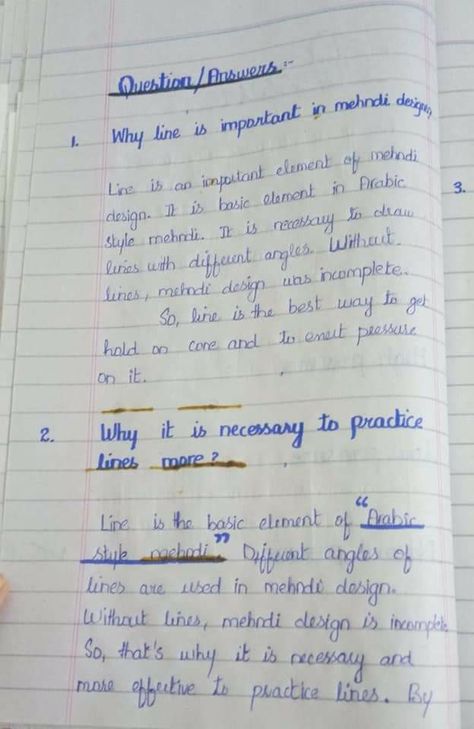 Question/Answers :-
1. Why line is important in mehndi design
Line is an important element of mehndi
design. It is basic element in Arabic
style mehndi. It is necessary to draw
lines with different angles. Without
lines, mehndi design was incomplete.
So, line is the best way to get
hold on cone and to exert pressure
on it.
3.
2. Why it is necessary to practice
lines more?
Line is the basic element of "Arabic
style mehndi." Different angles of
lines are used in mehndi design.
Without lines, mehndi design is incomplete
So, that's why it is necessary and
more effective to practice lines. By